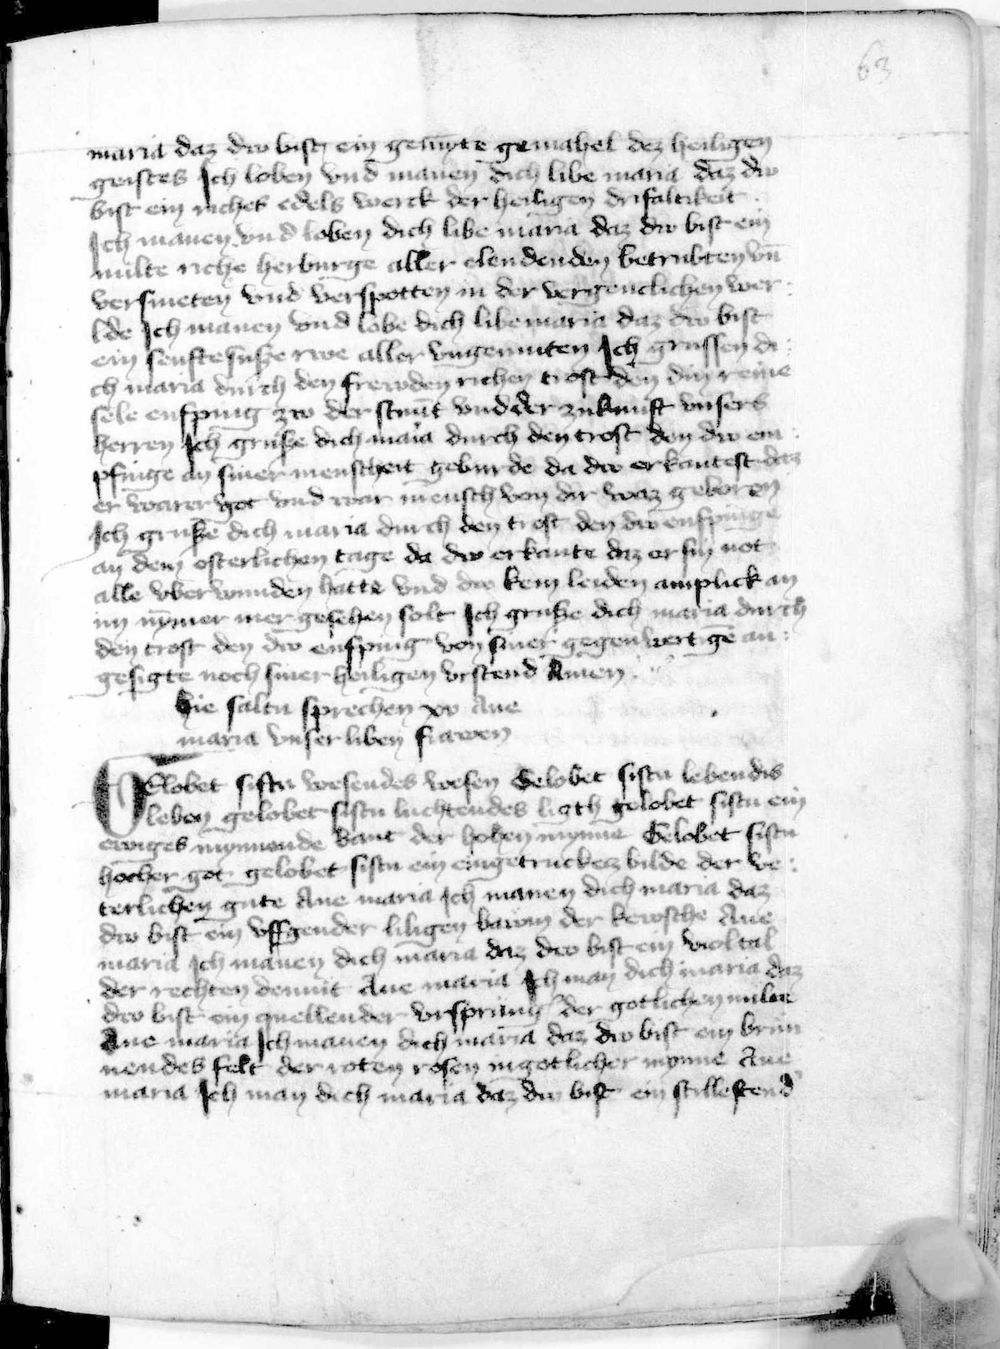 63
maria daz du bist ein gemynte gemahel dez heiligen
geistes Ich loben vnd manen dich libe maria daz du
bist ein riches edels werck der heiligen drifaltikeit
Ich manen vnd loben dich libe maria daz du bist ein
milte riche herburge aller elendenden betrubten vn̄
versmeten vnd verspotten in der vergenclichen wer:
lde Ich manen vnd lobe dich libe maria daz du bist
ein senfte susze rwe aller vngemuten Ich grussen di:
ch maria durch den frewden richen trost den din reine
sele enfping zu der stunt vnd der zukunft vnsers
herren Ich grusze dich maria durch den trost den du em:
pfinge an siner menscheit geburde da du erkantest daz
er warer got vnd war mensch von dir waz geboren
Ich grusze dich maria durch den trost den du enfpinge
an dem osterlichen tage da du erkante daz er sin not
alle vberwunden hatte vnd du kein leiden amplick an
im nymer mer gesehen solt Ich grusze dich maria durch
den trost den du enfping von siner gegenwertigē an:
gesigte noch siner heiligen vrstend Amen
Hie saltu sprechen xv Aue
maria vnser liben frawen
Gelobet sistu wesendes wesen Gelobet sistu lebendis
leben gelobet sistu luchtendes licth gelobet sistu ein
ewiges mynnende bant der hohen mynne Gelobet sistu
hocher got gelobet sistu ein eingetruckez bilde der ve:
terlichen gute Aue maria Ich manen dich maria daz
du bist ein vffgender liligen bawm der kewsche Aue
maria Ich manen dich maria daz du bist ein violtal
der rechten demut Aue maria Ich man dich maria daz
du bist ein quellender vrsprung der gotlichen milte
Aue maria Ich manen dich maria daz du bist ein brin
nendes felt der roten rosen in gotlicher mynne Aue
maria Ich man dich maria daz du bist ein stillestend